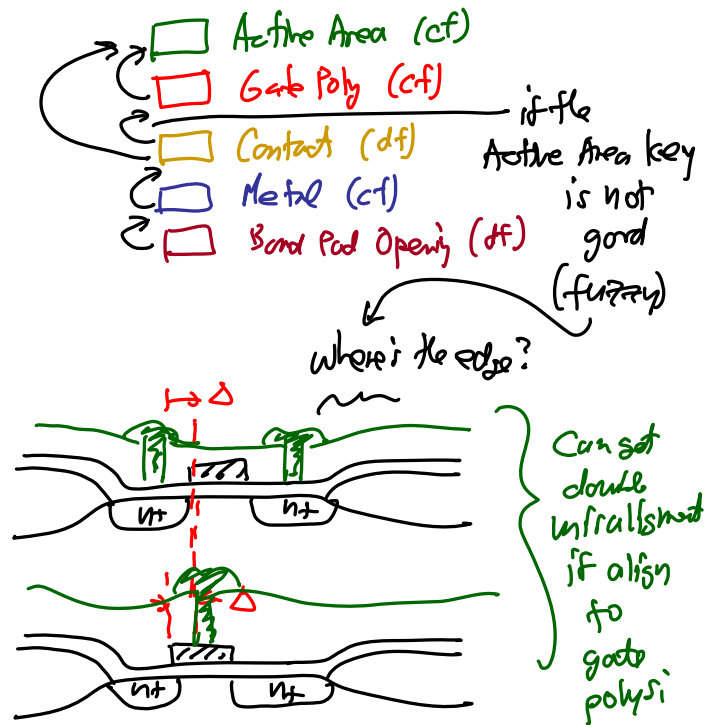 Active Area (cf)
Gate Poly (cf)
Contact (df)
Metal (cf)
Bond Pad Opening (df)
if the
Active Area key
is not
good
(fuzzy)
Where's the edge?
Δ
n+
n+
Δ
n+
n+
Can get
double
misalignment
if align
to
gate
polysi